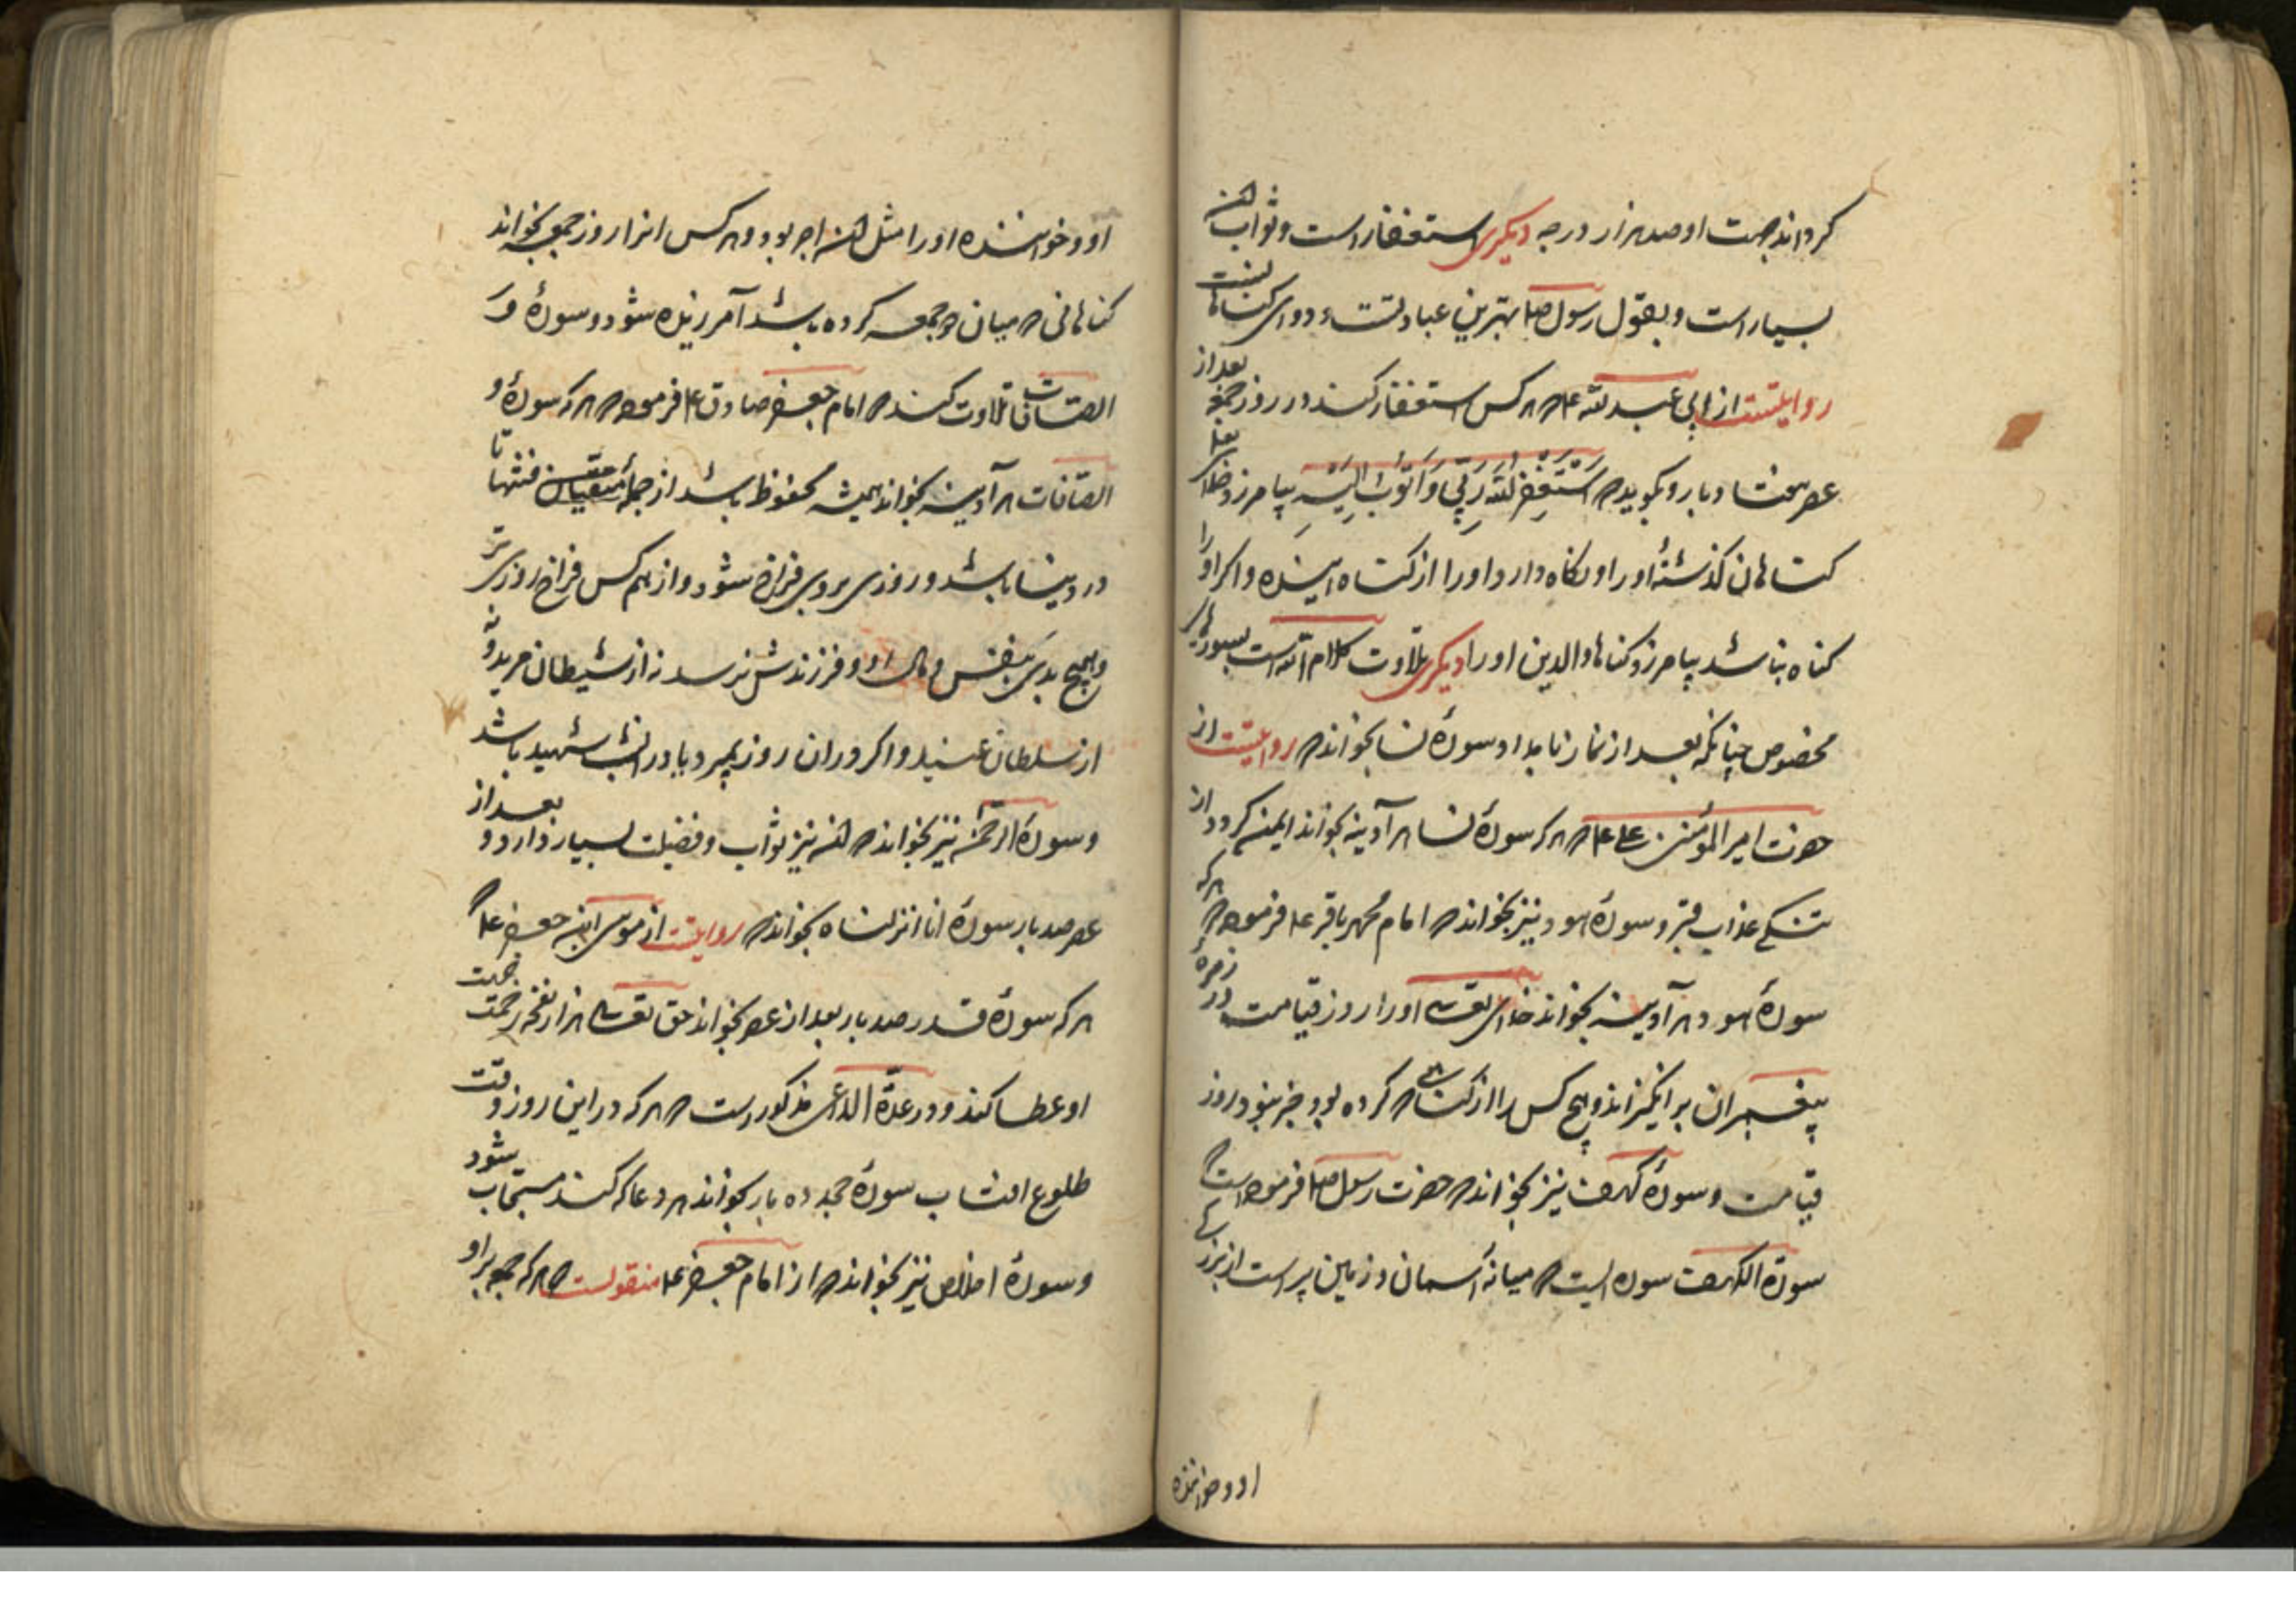 کرداند جهت او صد هزار درجه دیکری استغفار است و ثواب آن
بسیار است و بقول رسول صلعم بهترین عبادتست و دوای کناهانست
روایتست از ابی عبد الله ع م که هر کس استغفار کند در روز جمعه بعد از
عصر هفتاد بار و بکوید که اَسْتَغْفِرُ اللّٰهَ رَبّی وَ اَتُوبُ اِلَیْهِ بیامرزد خدای تعالی
کناهان کذشتهٔ او را و نکاه دارد او را از کناه آینده و اکر او را
کناه نباشد بیامرزد کناه والدین او را دیکری تلاوت کلام الله است بسورهای
مخصوص چنانکه بعد از نماز بامداد سورهٔ نسا بخواند که روایتست از
حضرت امیر المؤمنین علی ع م که هر که سورهٔ نسا هر آدینه بخواند ایمن کردد از
تنکی عذاب قبر و سورهٔ هود نیز بخواند که امام محمد باقر ع م فرموده که هر که
سورهٔ هود هر آدینه بخواند خدای تعالی او را روز قیامت در زمرهٔ
پیغمبران بر انکیزاند و هیچ کس را از کناهی که کرده بود خبر نبود روز
قیامت و سورهٔ کهف نیز بخواند که حضرت رسول صلعم فرموده است که
سورة الکهف سوره ایست که میانهٔ آسمان و زمین پر است از بزرکی
او و خواننده
او و خواننده او را مثل آن اجر بود و هر کس انرا روز جمعه بخواند
کناهانی که میان دو جمعه کرده باشد آمرزیده شود و سورهٔ وَ
الصّافات تلاوت کند که امام جعفر صادق ع م فرموده که هر که سورهٔ و
الصّافات هر آدینه بخواند همیشه محفوظ باشد از جملهٔ فتنها تا
در دنیا باشد و روزی بروی فراخ شود و از همه کس فراخ روزی تر
و هیچ بدی بنفس و مال او و فرزندش نرسد نه از شیطان مرید و نه
از سلطان عنید و اکر در ان روز بمیرد یا در انشب شهید باشد
و سورهٔ الرحمن نیز بخواند که آن نیز ثواب و فضیلت بسیار دارد و بعد از
عصر صد بار سورهٔ انا انزلناه بخواند که روایتست از موسی ابن جعفر ع م که
هر که سورهٔ قدر صد بار بعد از عصر بخواند حق تعالی هزار نفخهٔ رحمت بجهت
او عطا کند و در عدّة الداعی مذکور است که هر که در این روز وقت
طلوع افتاب سورهٔ حمد ده بار بخواند هر دعا که کند مستجاب شود
و سورهٔ اخلاص نیز بخواند که از امام جعفر ع م منقولست که هر که جمعه براو